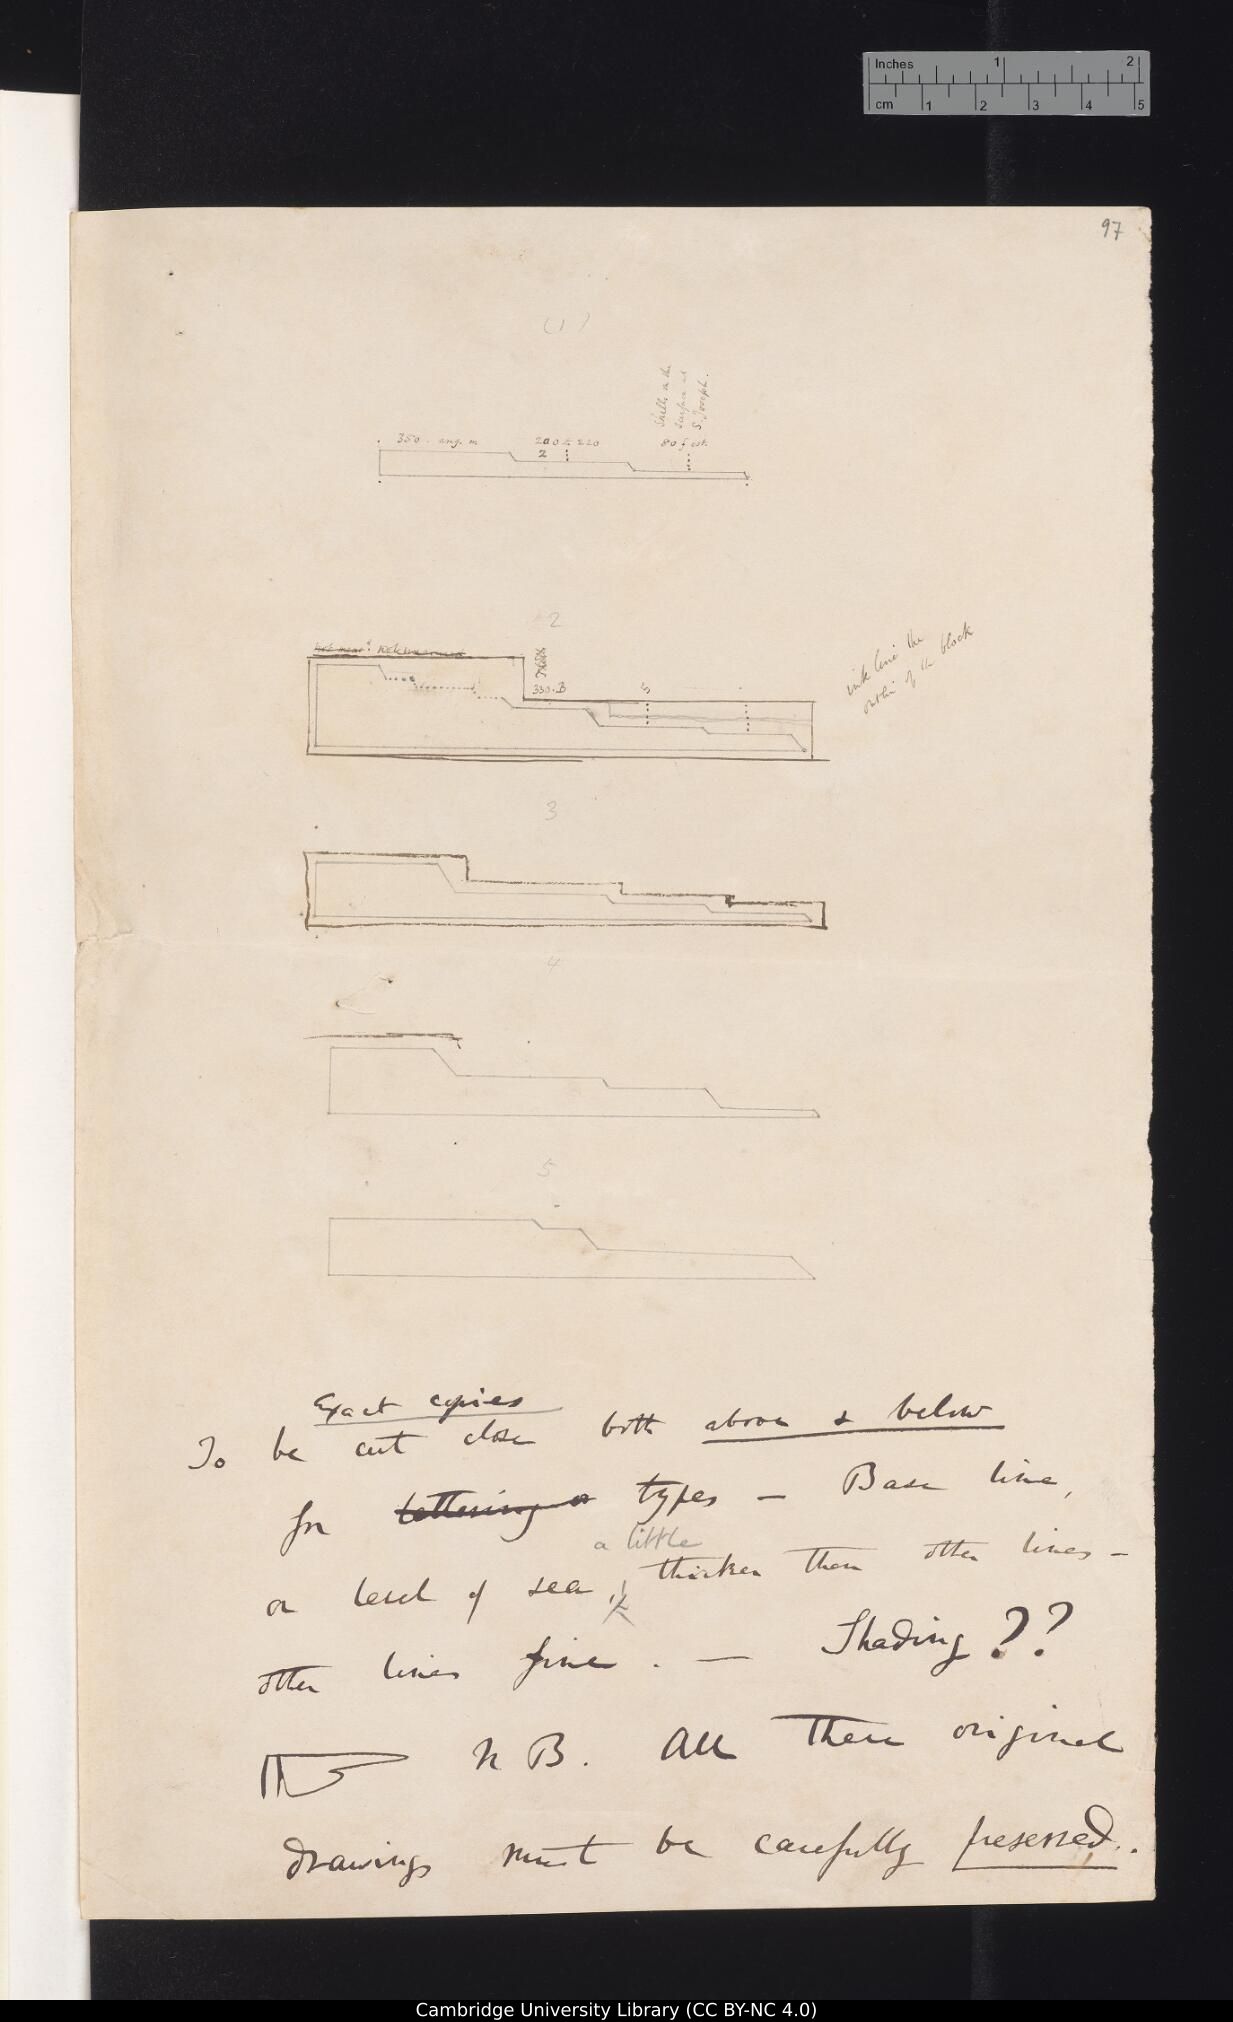 Inches 1 2
cm 1 2 3 4 5
97
(1)
Shells on the
surface at
S. Joseph.
350 . ang. m 200 to 220 80 f est.
2
2
330. B 5
ink line the
outline of the block
3
4
5
Exact copies
To be cut close both above & below
for lettering or types — Base line,
or level of sea, a little thicker than other lines —
other lines fine. — Shading ??
N B. All these original
drawings must be carefully preserved.
Cambridge University Library (CC BY-NC 4.0)